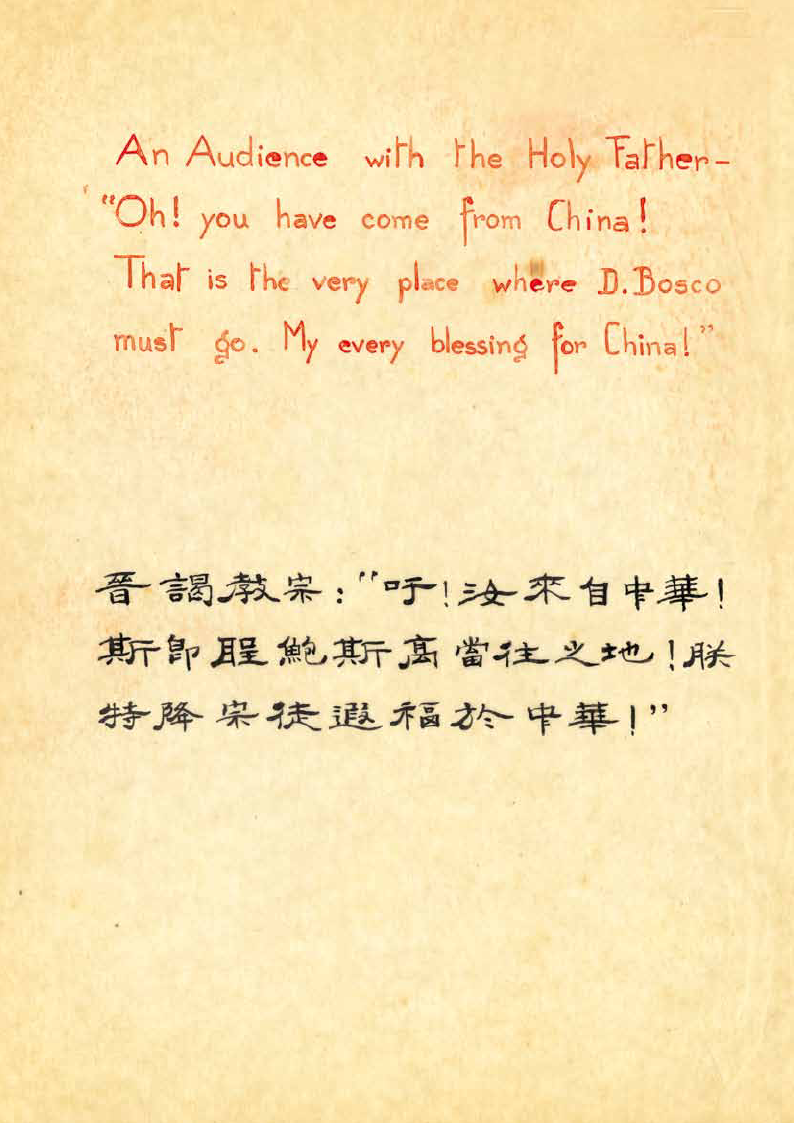 An Audience with the Holy Father-
"Oh! you have come from China!
That is the very place where D. Bosco
must go. My every blessing for China!"
晉謁教宗："吁!汝來自中華!
斯卽聖鮑斯高當往之地!朕
特降宗徒遐福於中華!"